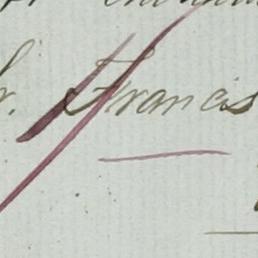 r. Francis